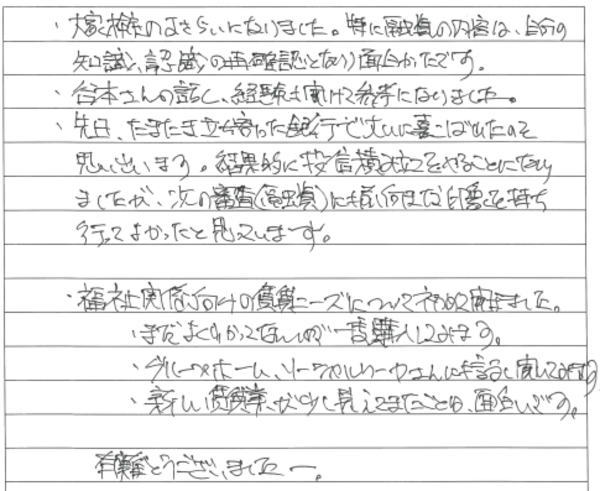 ・嫁検定のおさらいになりました。特に融資の内容は、自分の
知識、認識の再確認となり面白かったです。
・吉本さんの話し、経験も聞けて参考になりました。
・先日、たまたま立ち寄った銀行で大いに喜こばれたので
思い出います。結果的に投信積み立てをやることになり
ましたが、次の審査(融資)にも前向きな印象を持ち
行ってよかったと思っています。
・福祉関係向けの賃貸ニーズについて初めて聞きました。
・まだよくわかってないので一度購入してみます。
・グループホーム、ソーシャルワーカーさんにも話し聞いてみます
・新しい賃貸業が少し見えてきたことは、面白いです。
有難とうございましたー。